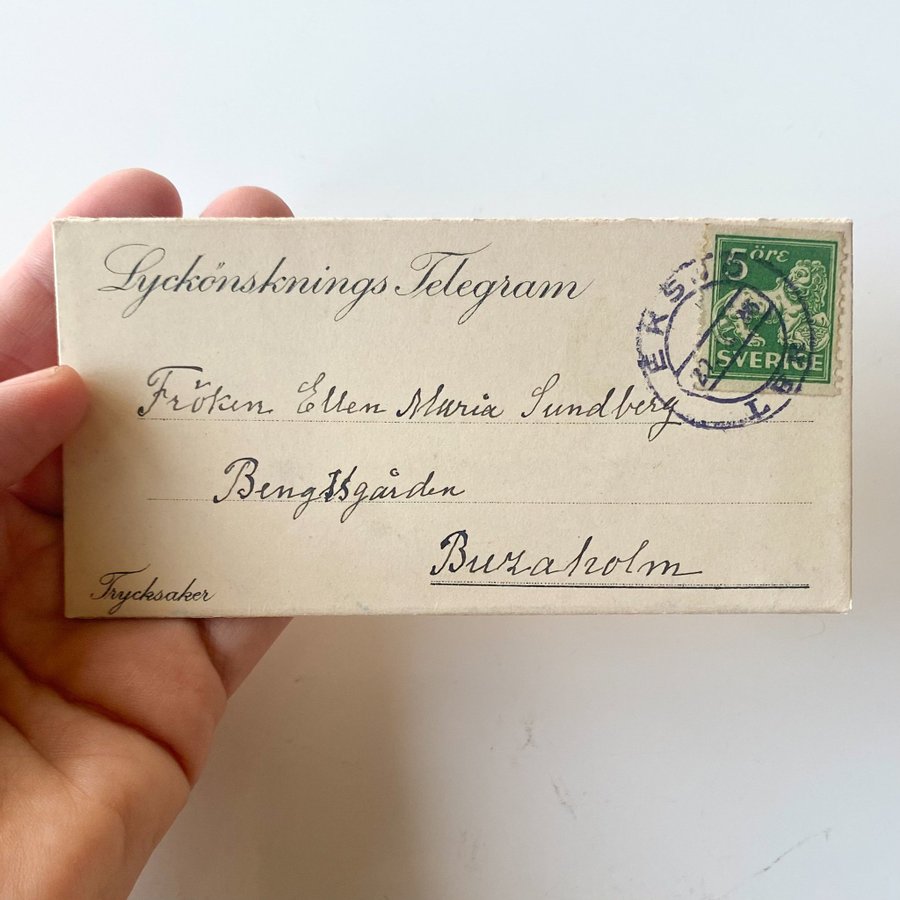 Lyckönsknings Telegram
5 ÖRE
SVERIGE
EKSJÖ
Fröken Ellen Maria Sundberg
Bengtsgården
Buraholm
Trycksaker